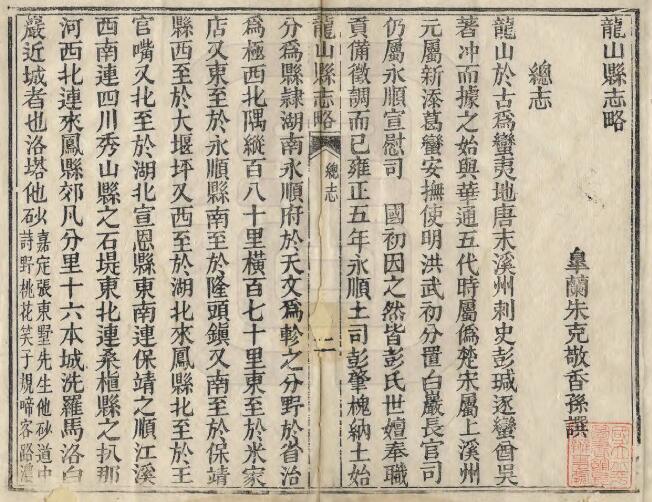 龍山縣志略
臯蘭朱克敬香孫譔
總志
龍山於古爲蠻夷地唐末溪州刺史彭瑊逐蠻酋吳
著沖而據之始與華通五代時屬僞楚宋屬上溪州
元屬新添葛蠻安撫使明洪武初分置白巖長官司
仍屬永順宣慰司　國初因之然皆彭氏世嬗奉職
貢備徵調而已雍正五年永順土司彭肇槐納土始
龍山縣志略
總志
二
分爲縣隷湖南永順府於天文爲軫之分野於省治
爲極西北隅縱百八十里橫百七十里東至於米家
店又東至於永順縣南至於隆頭鎮又南至於保靖
縣西至於大堰坪又西至於湖北來鳳縣北至於王
官嘴又北至於湖北宣恩縣東南連保靖之順江溪
西南連四川秀山縣之石堤東北連桑植縣之扒那
河西北連來鳳縣郊凡分里十六本城洗羅馬洛白
巖近城者也洛塔他砂嘉定張東墅先生他砂道中
詩野桃花笑子規啼客路濃